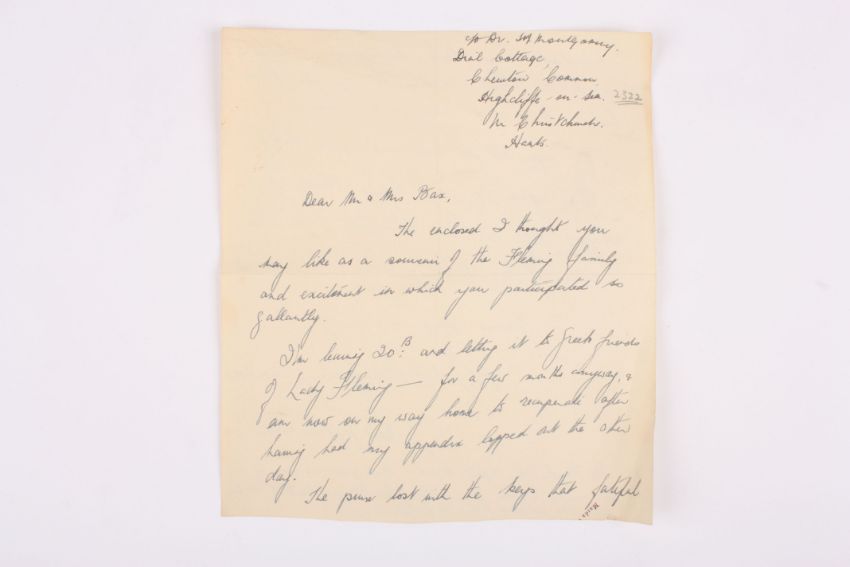 c/o Dr. Montgomery.
Dial Cottage,
Chewton Common,
Highcliffe-on-Sea. 2322
Nr Christchurch.
Hants.
Dear Mr & Mrs Bax,
The enclosed I thought you
may like as a souvenir of the Fleming family
and excitement in which you participated so
gallantly.
I'm leaving 20B and letting it to Greek friends
of Lady Fleming — for a few months anyway, &
am now on my way home to recuperate after
having had my appendix lopped out the other
day.
The purse lost with the keys that fateful